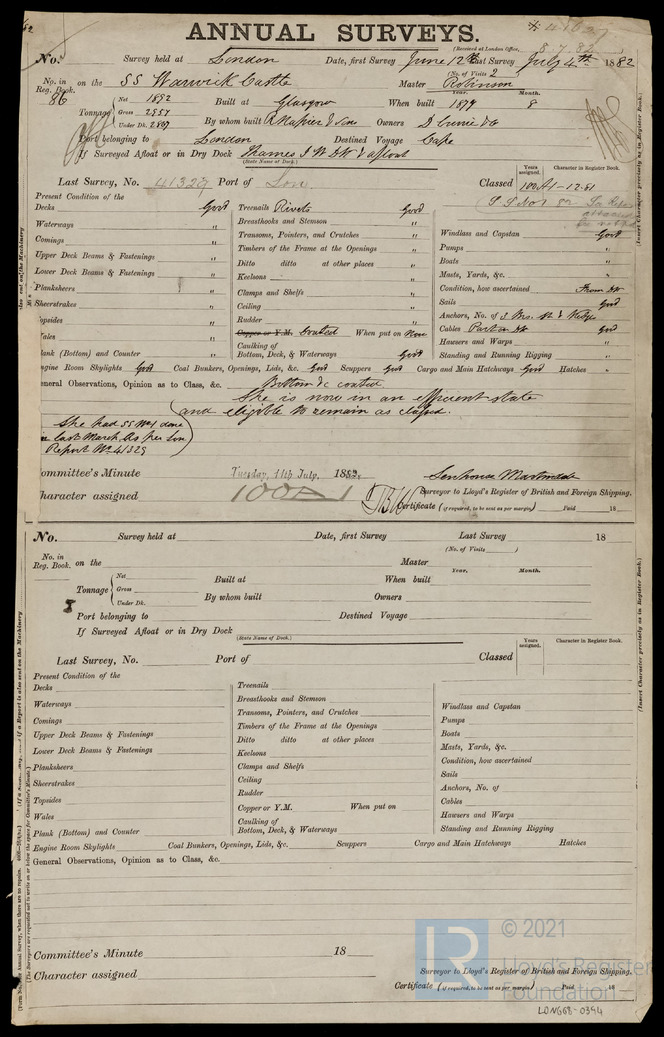 ANNUAL SURVEYS.
(Received at London Office, 8.7.82)
No. Survey held at London Date, first Survey June 12th Last Survey July 4th 1882
(No. of Visits 2)
No. in Reg. Book. 86 on the SS Warwick Castle Master Robinson
Tonnage Net 1892 Gross 2957 Under Dk. 2807
Built at Glasgow When built Year. 1877 Month. 8
By whom built R Napier & Son Owners D Currie & Co
Port belonging to London Destined Voyage Cape
If Surveyed Afloat or in Dry Dock Thames I W DK & afloat
(State Name of Dock.)
Last Survey, No. 41329 Port of Lon Classed Years assigned. Character in Register Book. 100A1-12.81
Present Condition of the
Decks Good Treenails Rivets Good
Waterways " Breasthooks and Stemson "
Comings " Transoms, Pointers, and Crutches " Windlass and Capstan Good
Upper Deck Beams & Fastenings " Timbers of the Frame at the Openings " Pumps "
Lower Deck Beams & Fastenings " Ditto ditto at other places " Boats "
Planksheers " Keelsons " Masts, Yards, &c. "
Sheerstrakes " Clamps and Shelfs " Condition, how ascertained From DK
Topsides " Ceiling " Sails Good
Wales " Rudder " Anchors, No. of
Copper or Y.M. Coated When put on Now Cables Part on DK Good
Plank (Bottom) and Counter " Caulking of Bottom, Deck, & Waterways Good Hawsers and Warps "
Standing and Running Rigging "
Engine Room Skylights Good Coal Bunkers, Openings, Lids, &c. Good Scuppers Good Cargo and Main Hatchways Good Hatches "
General Observations, Opinion as to Class, &c. Bottom &c coated
She is now in an efficient state
and eligible to remain as classed.
She had SS No 1 done
in last March As per Lon
Report No 41329
Committee's Minute Tuesday, 11th July, 1882.
Character assigned 100A1
Surveyor to Lloyd's Register of British and Foreign Shipping.
Certificate (if required, to be sent as per margin) Paid 18
No. Survey held at Date, first Survey Last Survey 18
(No. of Visits )
No. in Reg. Book. on the Master
Tonnage Net Gross Under Dk.
Built at When built Year. Month.
By whom built Owners
Port belonging to Destined Voyage
If Surveyed Afloat or in Dry Dock
(State Name of Dock.)
Last Survey, No. Port of Classed Years assigned. Character in Register Book.
Present Condition of the
Decks Treenails
Waterways Breasthooks and Stemson Windlass and Capstan
Comings Transoms, Pointers, and Crutches Pumps
Upper Deck Beams & Fastenings Timbers of the Frame at the Openings Boats
Lower Deck Beams & Fastenings Ditto ditto at other places Masts, Yards, &c.
Planksheers Keelsons Condition, how ascertained
Sheerstrakes Clamps and Shelfs Sails
Topsides Ceiling Anchors, No. of
Wales Rudder Cables
Copper or Y.M. When put on Hawsers and Warps
Plank (Bottom) and Counter Caulking of Bottom, Deck, & Waterways Standing and Running Rigging
Engine Room Skylights Coal Bunkers, Openings, Lids, &c. Scuppers Cargo and Main Hatchways Hatches
General Observations, Opinion as to Class, &c.
Committee's Minute 18
Character assigned
Surveyor to Lloyd's Register of British and Foreign Shipping.
Certificate (if required, to be sent as per margin) Paid 18
(Insert Character precisely as in Register Book.)
(Insert Character precisely as in Register Book.)
LR © 2021
Lloyd's Register
Foundation
LONG68-0394